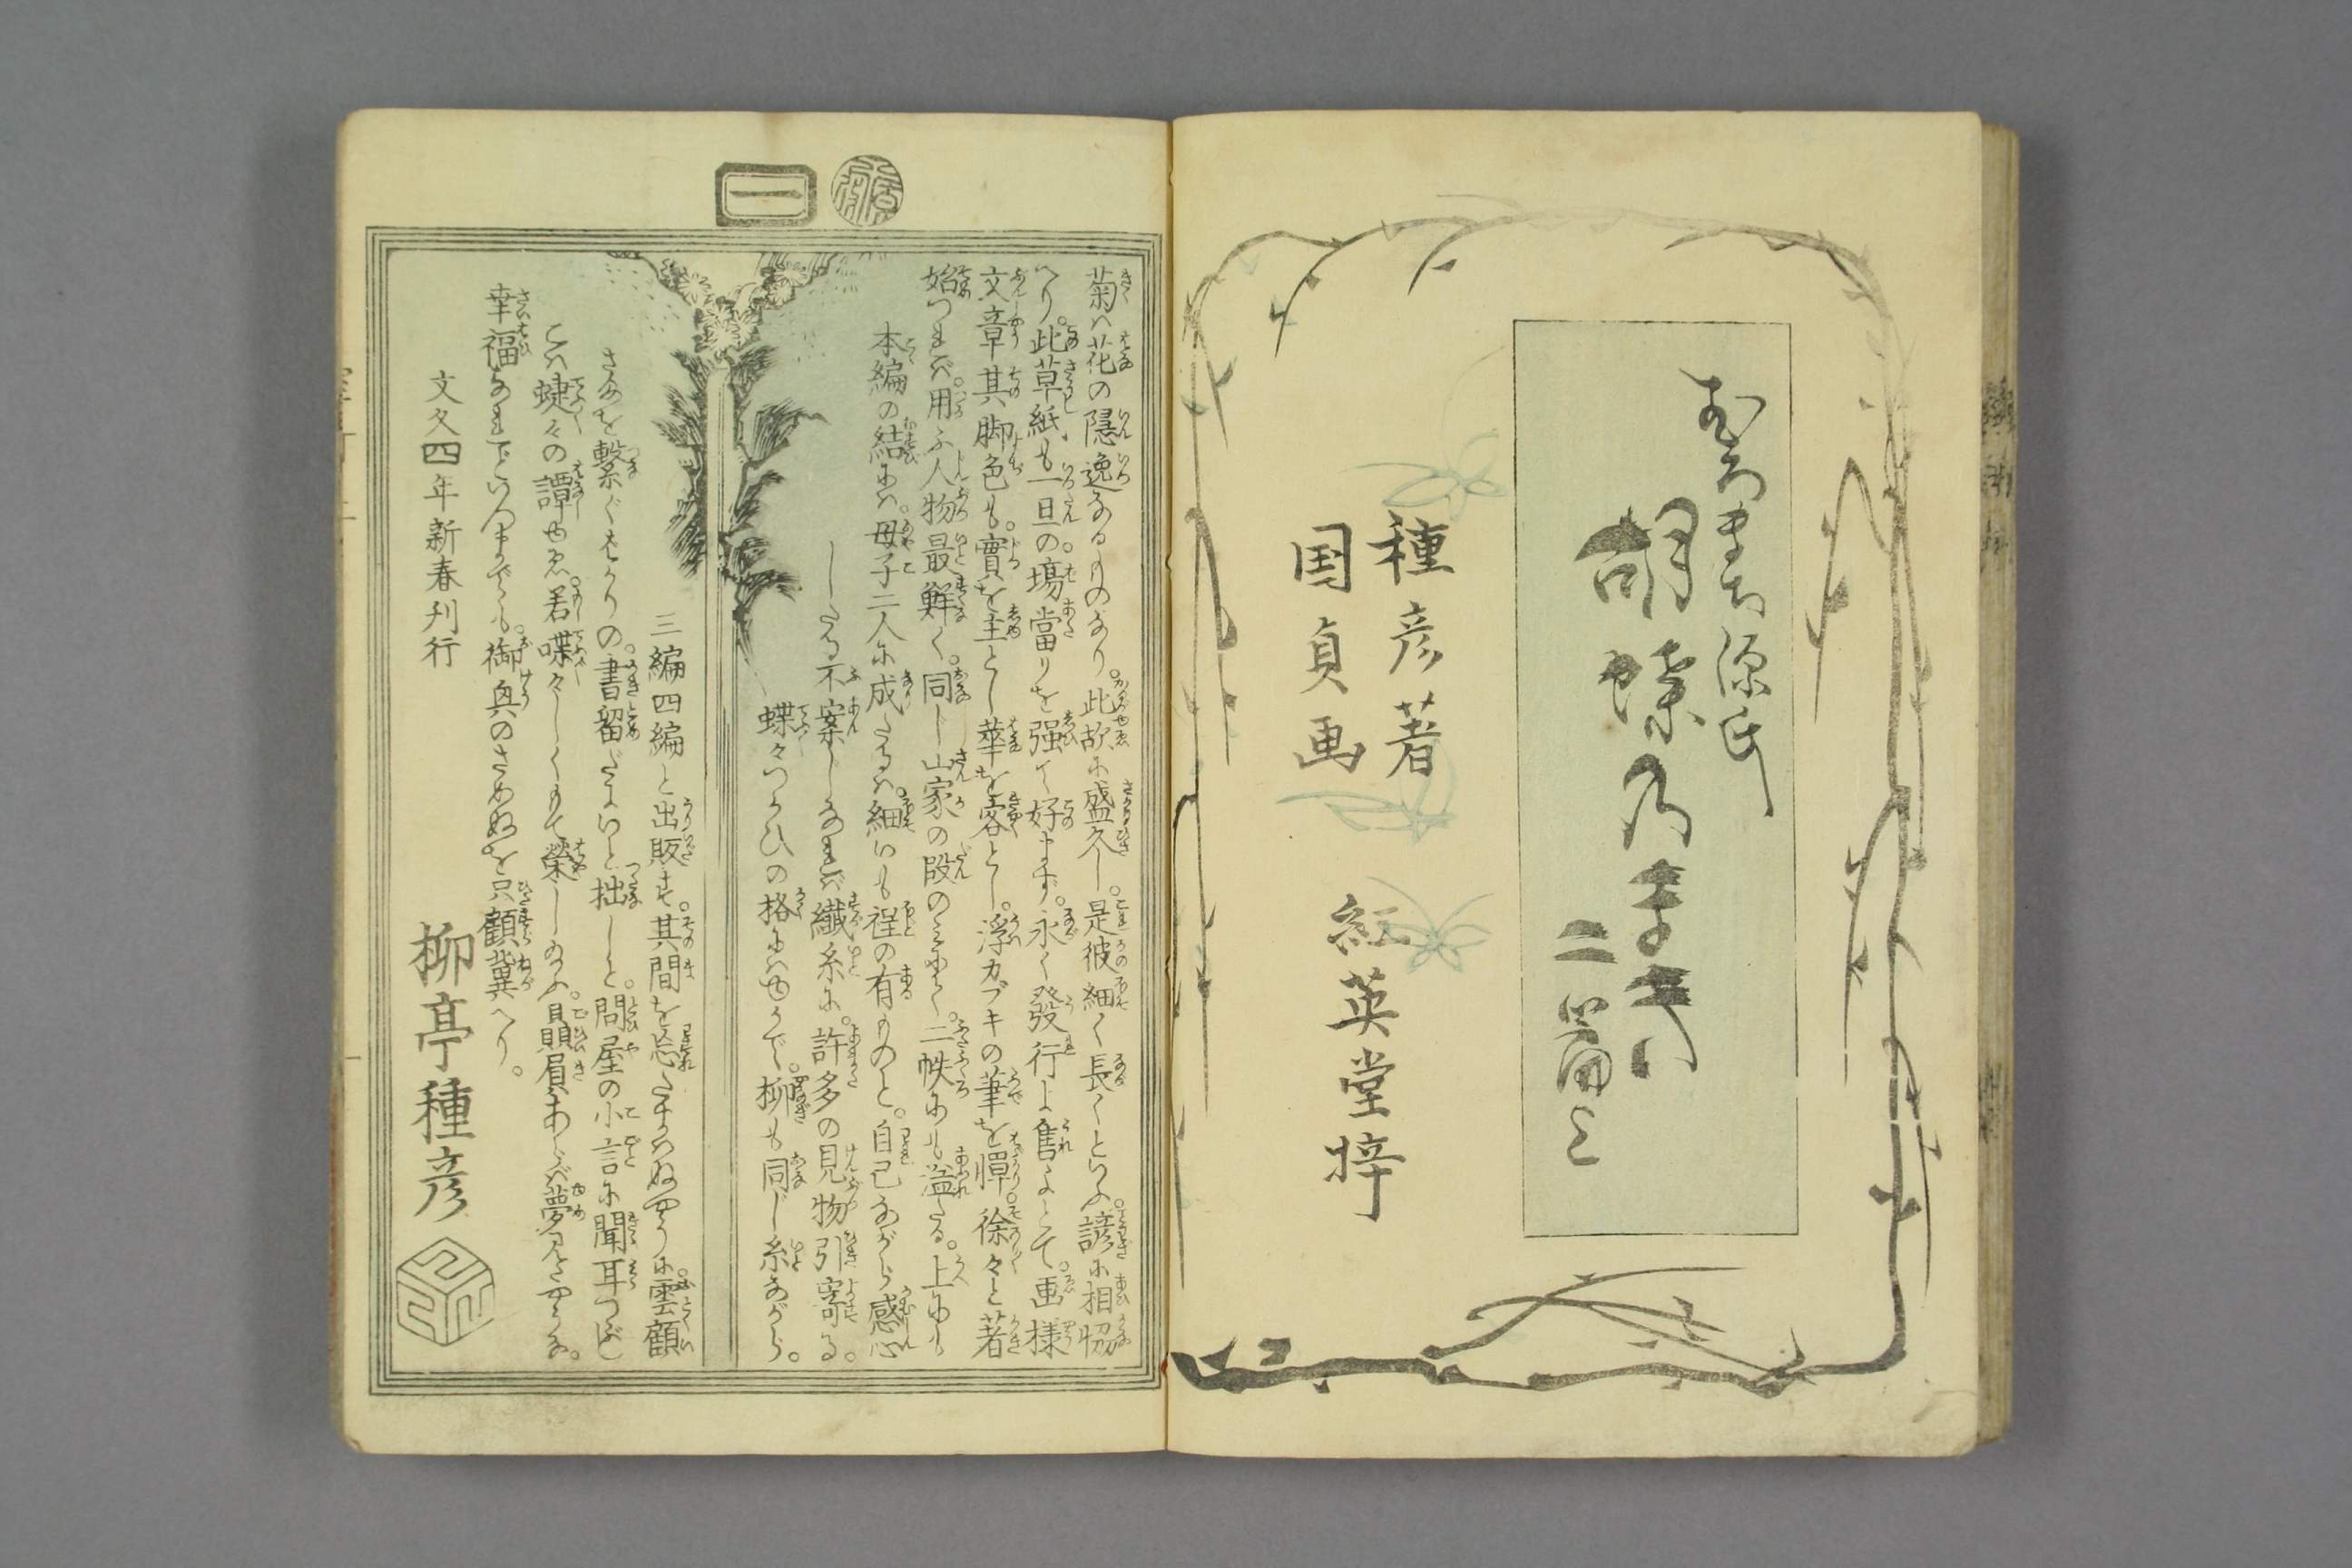 源氏
胡蝶乃
二篇上
種彦著
国貞画
紅英堂梓
一
菊は花の隠逸なるものなり。此故に盛久し。是彼細く長くといふ。諺に相協
へり。此草紙も一旦の。場當りを強て好まず。永く發行よ售よとて。画様
文章其脚色も。實を主とし華を客とし。浮カブキの筆を憚。徐々と著
始つれば。用ふ人物最鮮く。同じ山家の段のみにて。二帙にも溢たる。上にも
本編の結には。母子二人に成たるは。細いも程の有ものと。自己ながら感心
したる不案じなれば繊糸に。許多の見物引寄る。
蝶々つかひの格にはゆかで。柳も同じ糸ながら。
三編四編と出販す。其間を忘たまはぬやうに。雲顧
さめを繋ぐばかりの。書留だよいと拙しと。問屋の小言に聞耳つぶし
こは蜨々の譚ゆゑ。若喋々しくもて榮し給ふ。贔屓あらば夢見たやうな。
幸福なれ下といつまでも。御興のさめぬを只顧冀へり。
文久四年新春刋行
柳亭種彦